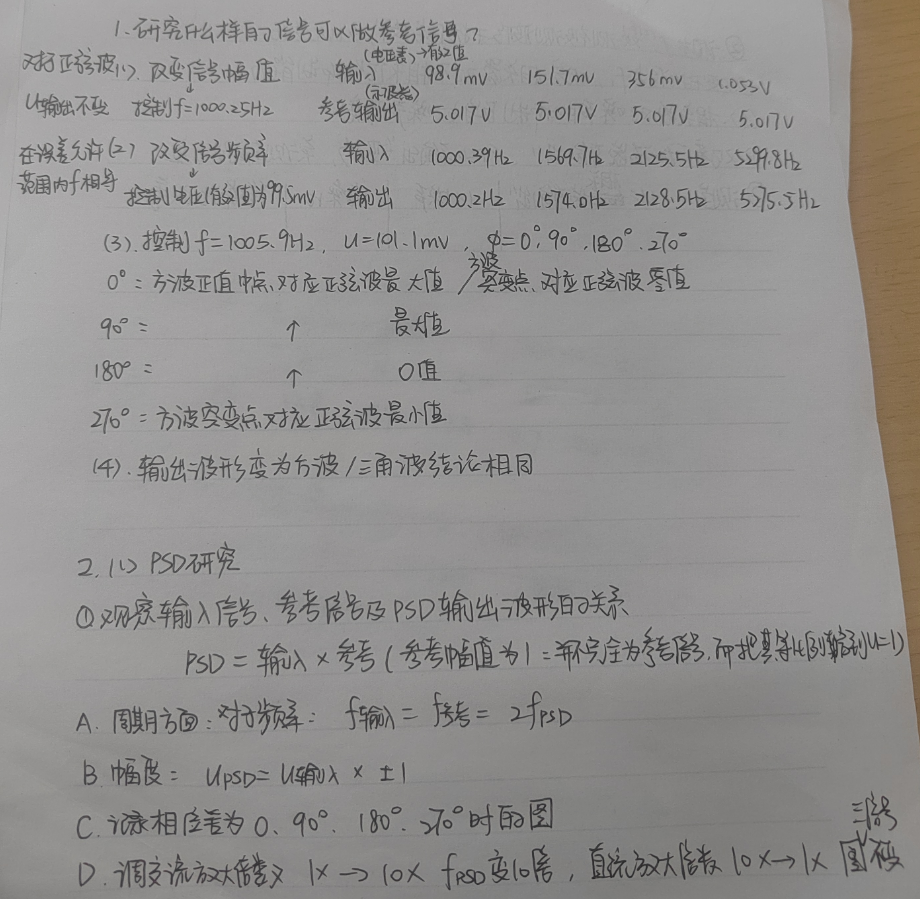 1.研究什么样的信号可以做参考信号?
对于正弦波(1). 改变信号幅值 输入(电压表)→有效值 98.9mV 151.7mV 356mV 1.053V
U输出不变 控制f=1000.25Hz 参考输出(示波器) 5.017V 5.017V 5.017V 5.017V
在误差允许(2) 改变信号频率 输入 1000.39Hz 1569.7Hz 2125.5Hz 5299.8Hz
范围内f相等 控制电压(有效值)为99.5mV 输出 1000.2Hz 1574.0Hz 2128.5Hz 5275.5Hz
(3).控制f=1005.9Hz, U=101.1mV, φ=0°,90°,180°,270°
0°=方波正值中点,对应正弦波最大值/方波突变点,对应正弦波零值
90°= ↑ 最大值
180°= ↑ 0值
270°=方波突变点对应正弦波最小值
(4).输出波形变为方波/三角波结论相同
2.(1) PSD研究
①观察输入信号、参考信号及PSD输出波形的关系
PSD=输入×参考(参考幅值为1=并不完全为参考信号,而把其等比例缩到U=1)
A. 周期方面:对于频率: f输入=f参考=2fPSD
B.幅度: UPSD=U输入×±1
C.记录相位差为0、90°、180°、270°时的图
D.调交流放大倍数 1×→10× fPSD变10倍,直流放大倍数10×→1× 图不变
三信号